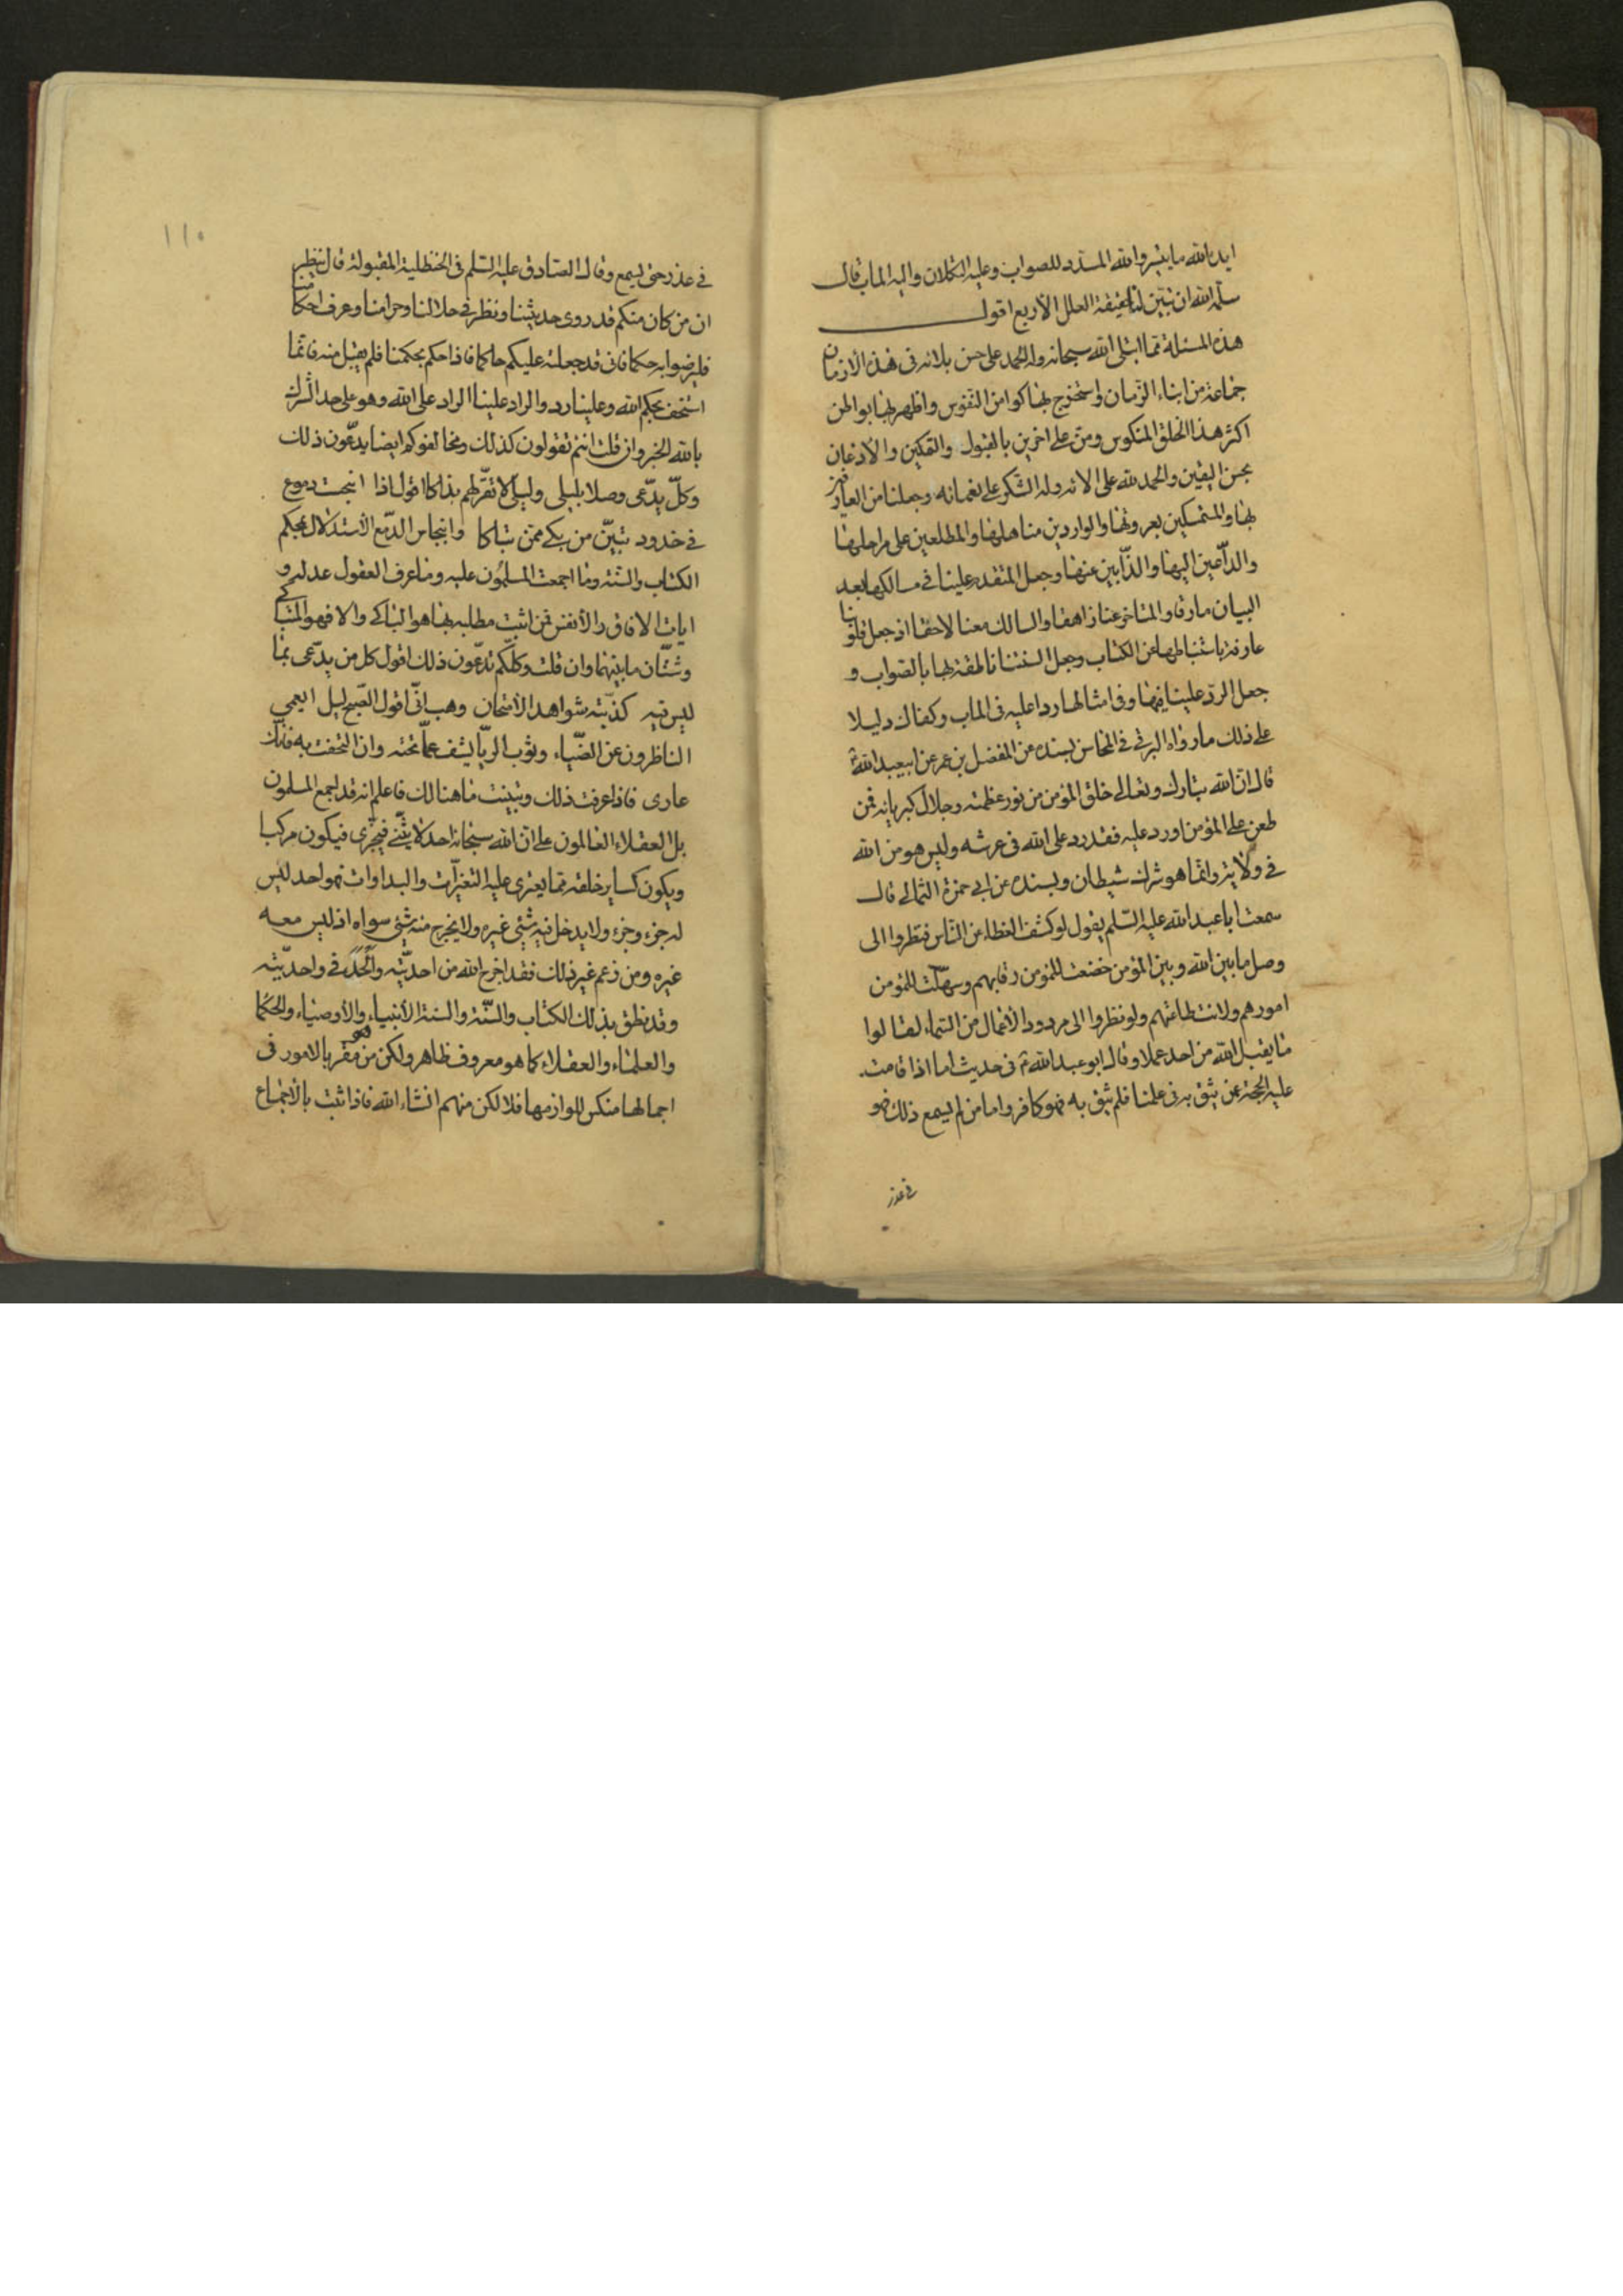 ايده الله ما يتيسر والله المسدد للصواب وعليه التكلان واليه الماب قال
سلمه الله ان تبين لنا حقيقة العلل الأربع اقول
هذه المسئلة مما ابتلى الله سبحانه وله الحمد على حسن بلائه في هذه الازمان
جماعة من ابناء الزمان واستخرج بها كوامن النفوس واظهر بها بواطن
اكثر هذا الخلق المنكوس ومن على اخرين بالقبول والتمكين والاذعان
بحسن اليقين والحمد لله على الائه وله الشكر على نعمائه وجعلنا من العارفين
بها والمتمسكين بعروتها والواردين مناهلها والمطلعين على مراحلها
والداعين اليها والذابين عنها وجعل المتقدم علينا في مسالكها بعد
البيان مارقا والمتاخر عنا زاهقا والسالك معنا لاحقا اذ جعل قلوبنا
عارفة باستنباطها من الكتاب وجعل السنتنا ناطقة بها بالصواب و
جعل الرد علينا فيها وفي امثالها ردا عليه في الماب وكفاك دليلا
على ذلك ما رواه البرقي في المحاسن بسنده عن المفضل بن عمر عن ابيعبد الله ع
قال ان الله تبارك وتعالى خلق المؤمن من نور عظمته وجلال كبريائه فمن
طعن على المؤمن او رد عليه فقد رد على الله في عرشه وليس هو من الله
في ولايته وانما هو شرك شيطان وبسنده عن ابي حمزة الثمالي قال
سمعت ابا عبد الله عليه السلم يقول لو كشف الغطاء عن الناس فنظروا الى
وصل ما بين الله وبين المؤمن خضعت للمؤمن رقابهم وسهلت للمؤمن
امورهم ولانت طاعتهم ولو نظروا الى مردود الأعمال من السماء لقالوا
ما يقبل الله من احد عملا وقال ابو عبد الله ع في حديث اما اذا قامت
عليه الحجة ممن يثق به في علمنا فلم يثق به فهو كافر واما من لم يسمع ذلك فهو
في عذر
١١٥
في عذر حتى يسمع وقال الصادق عليه السلم في الحنظلية المقبولة قال ينظر
ان من كان منكم قد روى حديثنا ونظر في حلالنا وحرامنا وعرف احكامنا
فليرضوا به حكما فاني قد جعلته عليكم حاكما فاذا حكم بحكمنا فلم يقبل منه فانما
استخف بحكم الله وعلينا رد والراد علينا الراد على الله وهو على حد الشرك
بالله الخبر وان قلت انتم تقولون كذلك ومخالفوكم ايضا يدعون ذلك
وكل يدعى وصلا بليلى وليلى لا تقر لهم بذاكا اقول اذا انبجست دموع
في خدود تبين من بكى ممن تباكا وانبجاس الدمع الأستدلال بمحكم
الكتاب والسنة وما اجمعت المسلمون عليه وما عرف العقول عدله و
ايات الافاق والأنفس فمن اثبت مطلبه بها هو الباكي والا فهو المتباكي
وشتان ما بينهما وان قلت وكلكم تدعون ذلك اقول كل من يدعى بما
ليس فيه كذبته شواهد الأمتحان وهب اني اقول الصبح ليل ايعمى
الناظرون عن الضياء وثوب الريا يشف عما تحته وان التحفت به فانك
عارى فاذا عرفت ذلك وتبينت ما هنالك فاعلم انه قد اجمع المسلمون
بل العقلاء العالمون على ان الله سبحانه احد لا يثنى فيجزى فيكون مركبا
ويكون كساير خلقه مما يعترى عليه التغيرات والبداوات فهو احد ليس
له جزء وجزء ولا يدخل فيه شئ غيره ولا يخرج منه شئ سواه اذ ليس معه
غيره ومن زعم غير ذلك فقد اخرج الله من احديته والحد في واحديته
وقد نطق بذلك الكتاب والسنة والسنة الأنبياء والأوصياء والحكما
والعلماء والعقلاء كما هو معروف ظاهر ولكن من هو مقر بالامور في
اجمالها منكر للوازمها فلا لكن منهم انشاء الله فاذا ثبت بالأجماع